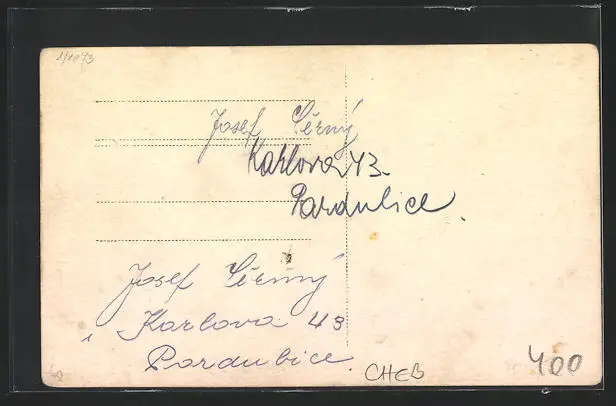 1/1093
Josef Šěrný
Karlova 43.
Pardubice.
Josef Šěrmý
Karlova 43
Pardubice.
CHEB
400